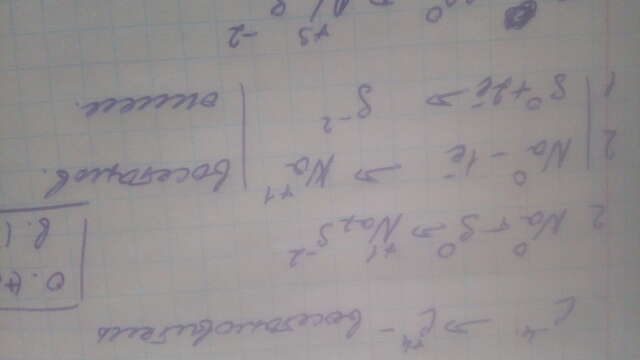 C⁻⁴ → C⁺⁴ - восстановитель
2Na⁰ + S⁰ → Na₂⁺¹S⁻²
2 | Na⁰ - 1e⁻ → Na⁺¹ | восстанов.
1 | S⁰ + 2e⁻ → S⁻² | окислит.
0 +3 -2